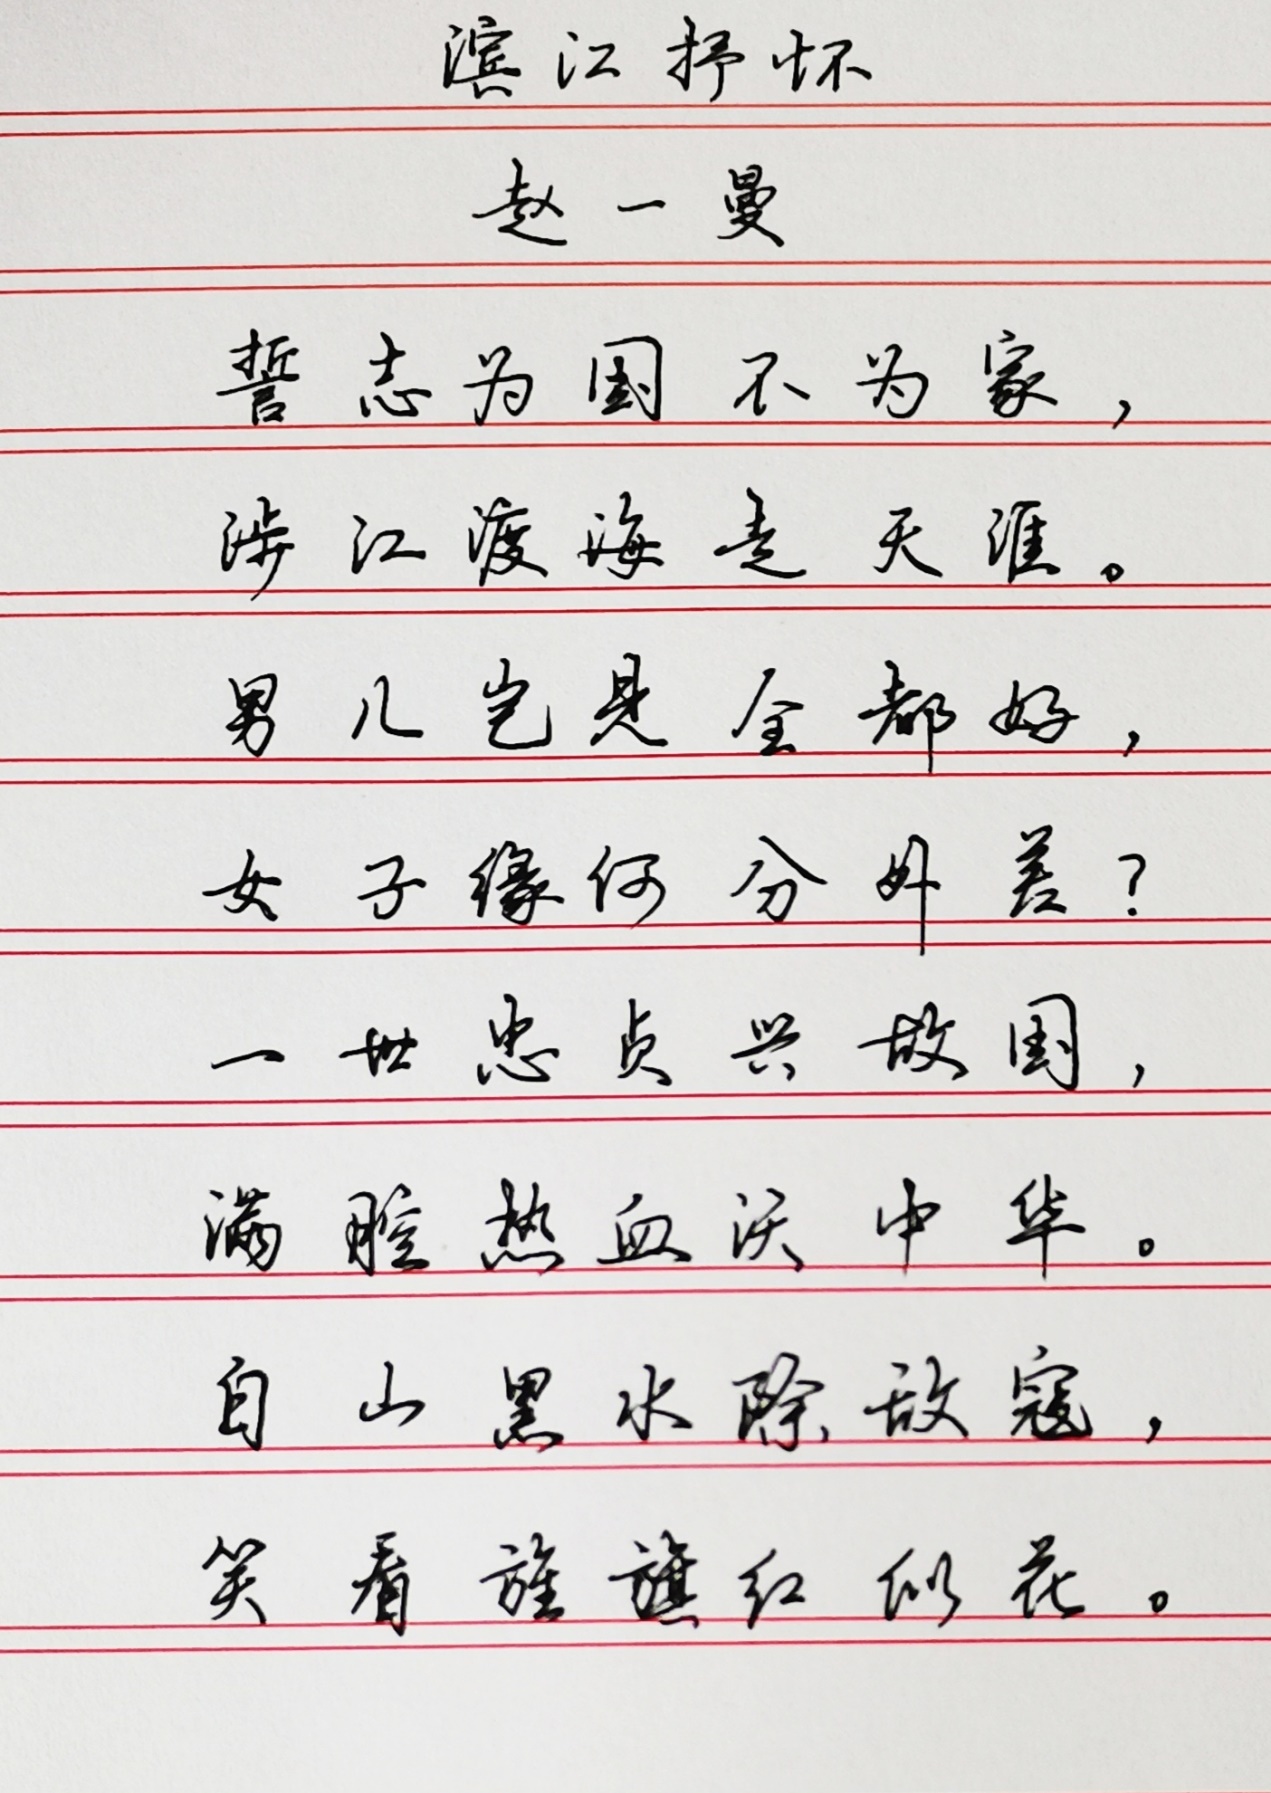 滨江抒怀
赵一曼
誓志为国不为家，
涉江渡海走天涯。
男儿岂是全都好，
女子缘何分外差？
一世忠贞兴故国，
满腔热血沃中华。
白山黑水除敌寇，
笑看旌旗红似花。